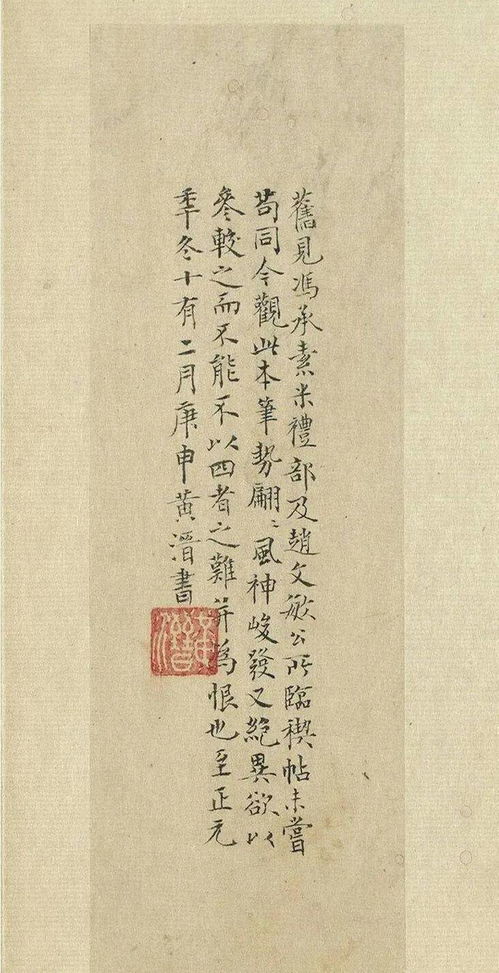 舊見馮承素米禮部及趙文敏公所臨禊帖未嘗
茍同今觀此本筆勢翩〻風神峻發又絕異欲以
參較之而不能不以四者之難并為恨也至正元
季冬十有二月庚申黃溍書